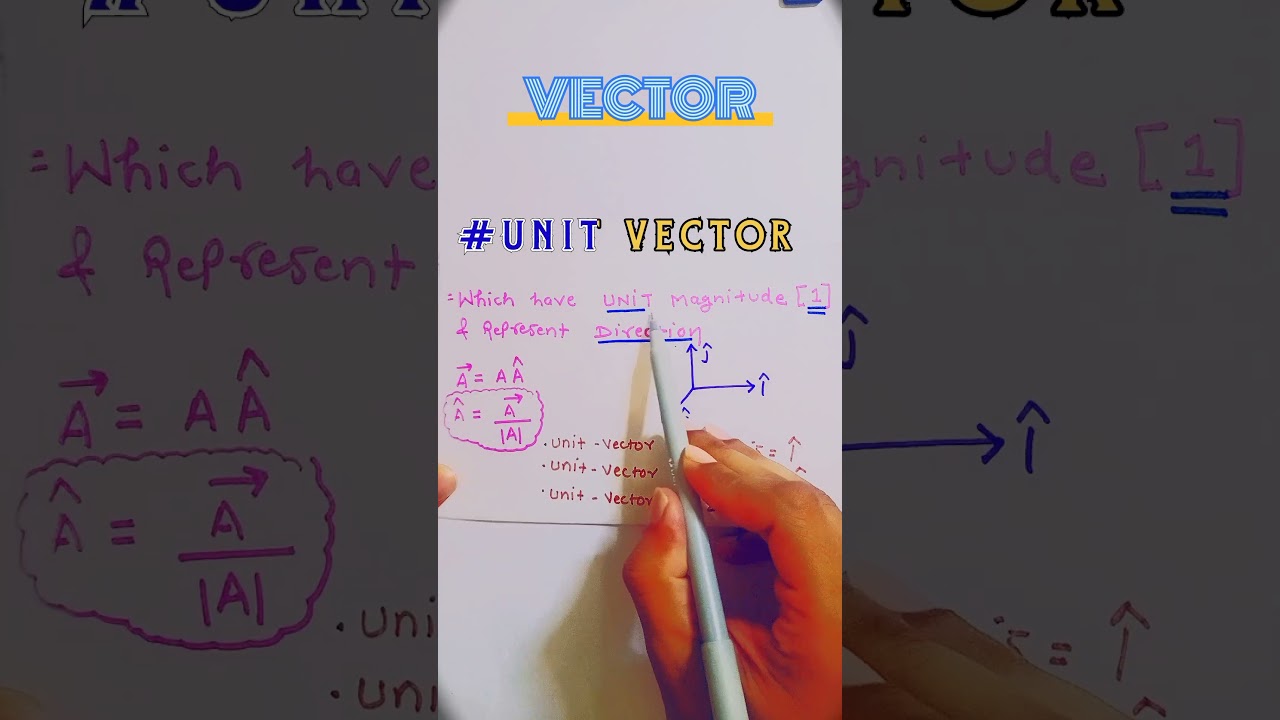 VECTOR
#UNIT VECTOR
= Which have UNIT Magnitude [1]
& Represent Direction
A⃗ = A Â
Â = A⃗ / |A|
ĵ
î
• Unit - Vector
= î
• Unit - Vector
• Unit - Vector